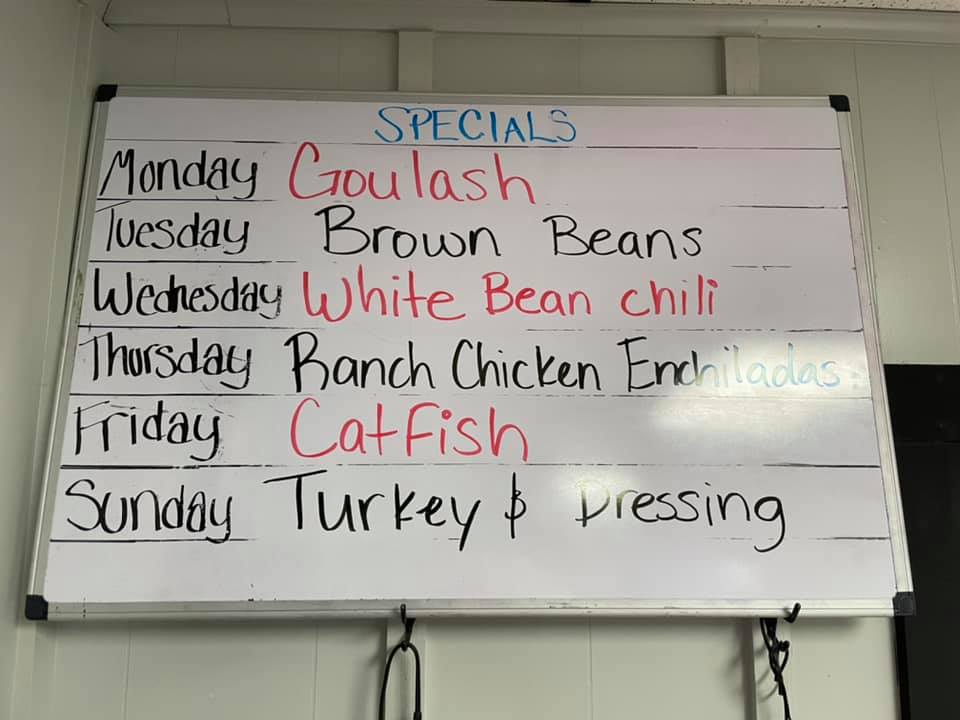 SPECIALS
Monday Goulash
Tuesday Brown Beans
Wednesday White Bean chili
Thursday Ranch Chicken Enchiladas
Friday Catfish
Sunday Turkey & Dressing